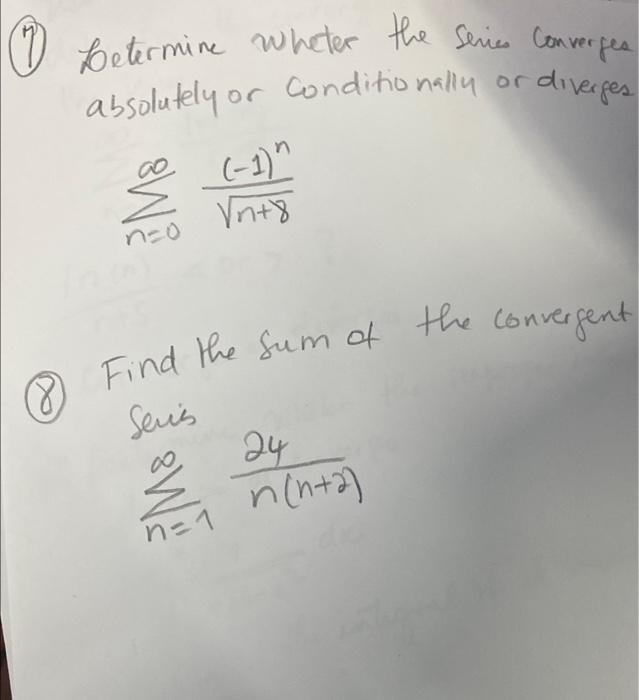 ⑦ Determine wheter the series Converges
absolutely or Conditionally or diverges
∞
∑ (-1)^n / √n+8
n=0
⑧ Find the sum of the convergent
Series
∞
∑ 24 / n(n+2)
n=1